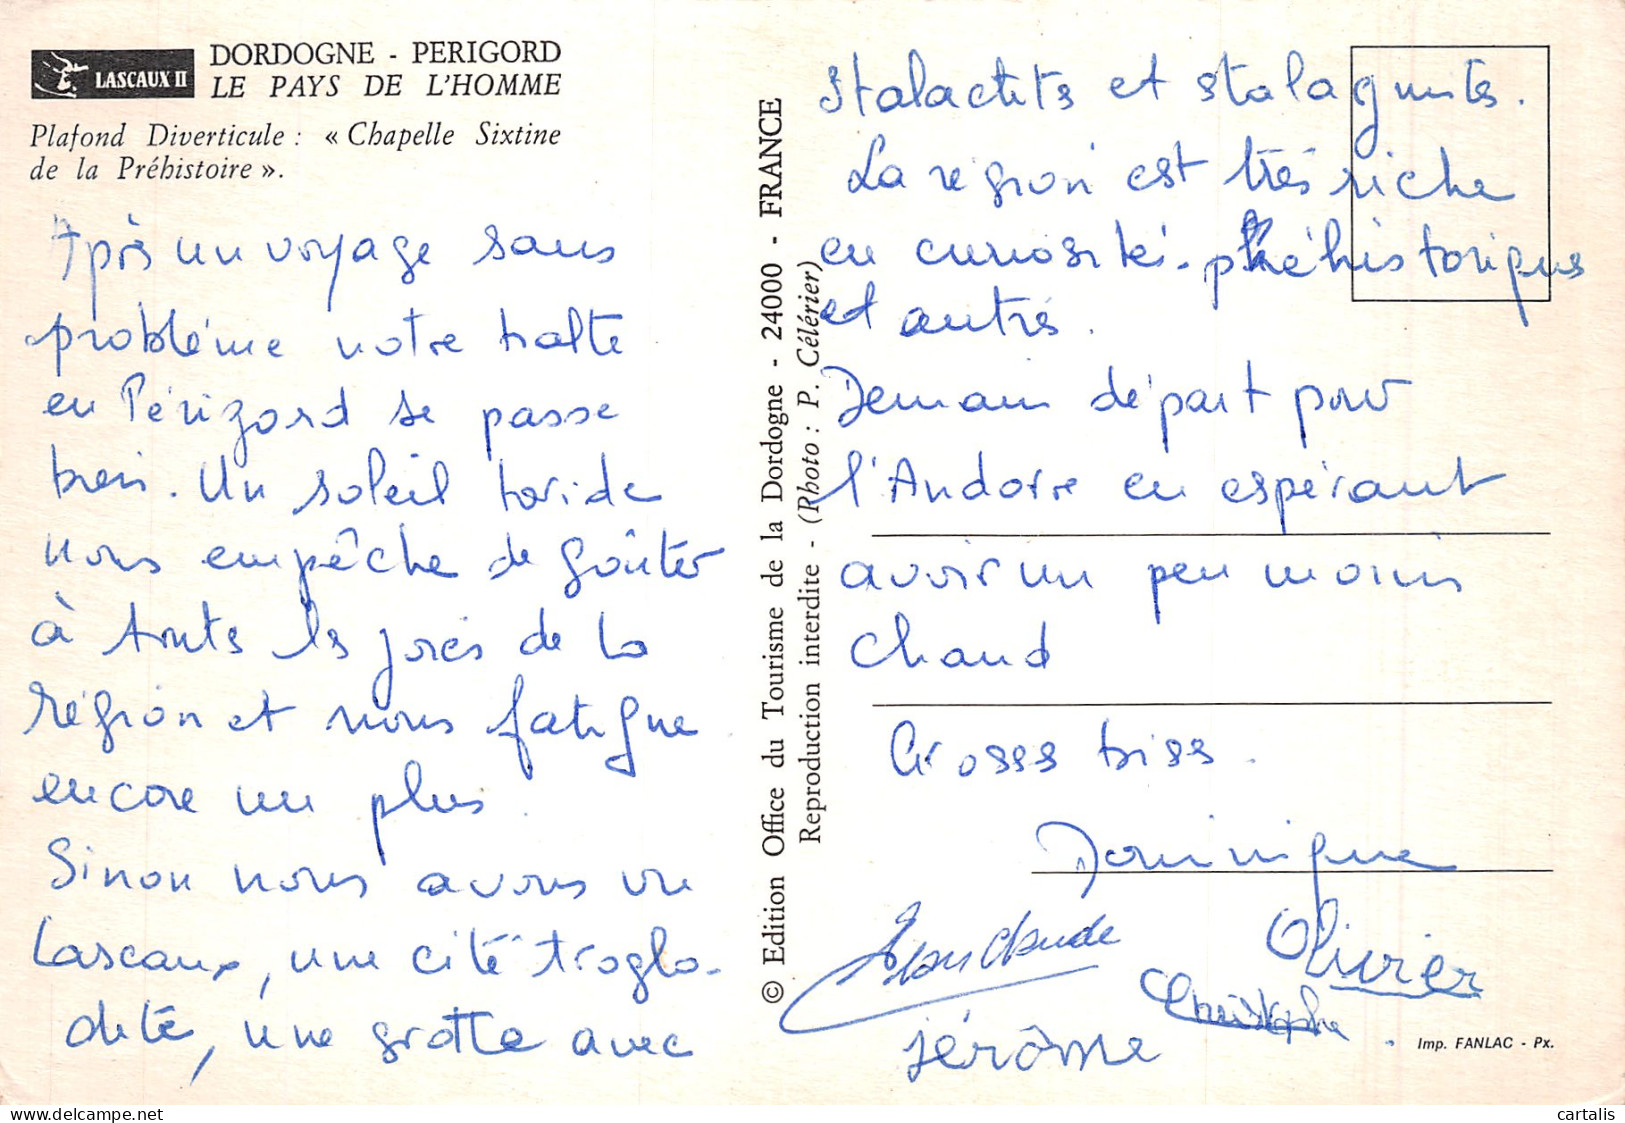 LASCAUX II
DORDOGNE - PERIGORD
LE PAYS DE L'HOMME
Plafond Diverticule : « Chapelle Sixtine
de la Préhistoire ».
Après un voyage sans
problème notre halte
en Périgord se passe
bien. Un soleil torride
nous empêche de goûter
à toutes les joies de la
région et nous fatigue
encore un plus.
Sinon nous avons vu
Lascaux, une cité troglo-
dite, une grotte avec
© Edition Office du Tourisme de la Dordogne - 24000 - FRANCE
Reproduction interdite - (Photo : P. Célérier)
stalactites et stalagmites.
La région est très riche
en curiosité. préhistoriques
et autres.
Demain départ pour
l'Andorre en espérant
avoir un peu moins
chaud
Grosses bises.
Dominique
Jean Claude
Olivier
Christophe
jérôme
Imp. FANLAC - Px.
cartalis